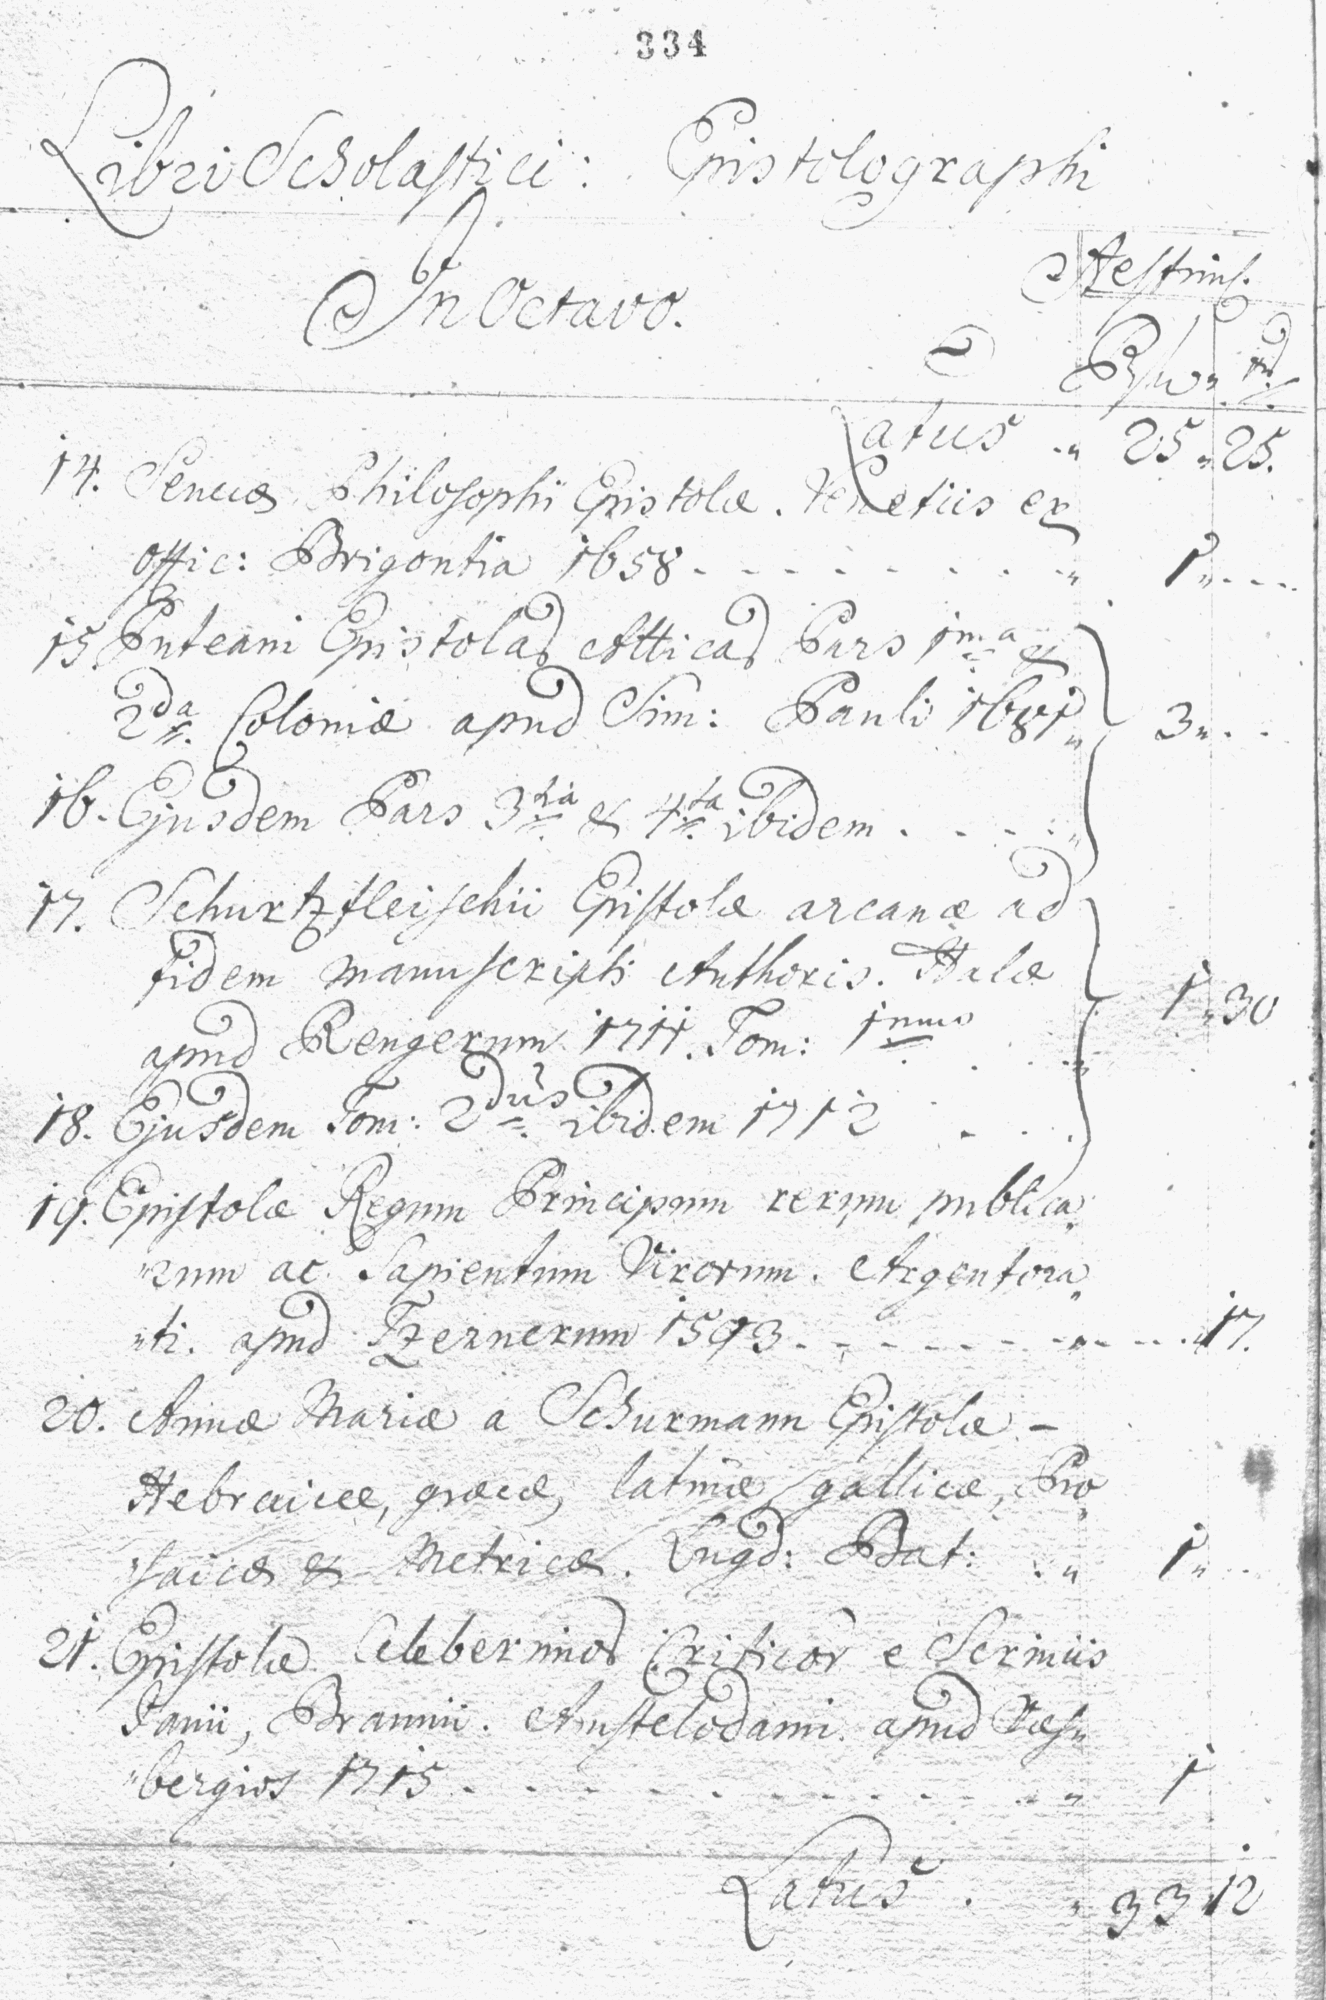 334
Libri Scholastici: Epistolographi
In Octavo.
Aestim.
Latus " 25 " 25.
14. Senecæ Philosophi Epistolæ. Venetiis ex
offic: Brigontia 1658 . . . . . . . . . " 1 " . . .
15. Puteani Epistolaȝ Atticaȝ Pars 1ma &
2da Coloniæ apud Sim: Pauli 1681 " 3 " . .
16. Ejusdem Pars 3tia & 4ta ibidem . . . . "
17. Schurtzfleischii Epistolæ arcanæ ad
fidem manuscripti Authoris. Halæ
apud Rengerum 1711. Tom: 1mus . . . " 1 " 30
18. Ejusdem Tom: 2dus ibidem 1712 . . .
19. Epistolæ Regum Principum rerum publica„
„rum ac Sapientum Virorum. Argentora„
„ti. apud Tzernerum 1593 . . . . . . . " . . . " 17.
20. Annæ Mariæ a Schurmann Epistolæ –
Hebraicæ, græcæ, latinæ, gallicæ, Pro„
„saicæ & Metricæ. Lugd: Bat: . " 1 " . .
21. Epistolæ Celeberrimoȝ Criticor e Scriniis
Janii, Braunii. Amstelodami apud Væs„
„bergios 1715 . . . . . . . . . . . " 1
Latus . " 33 " 12